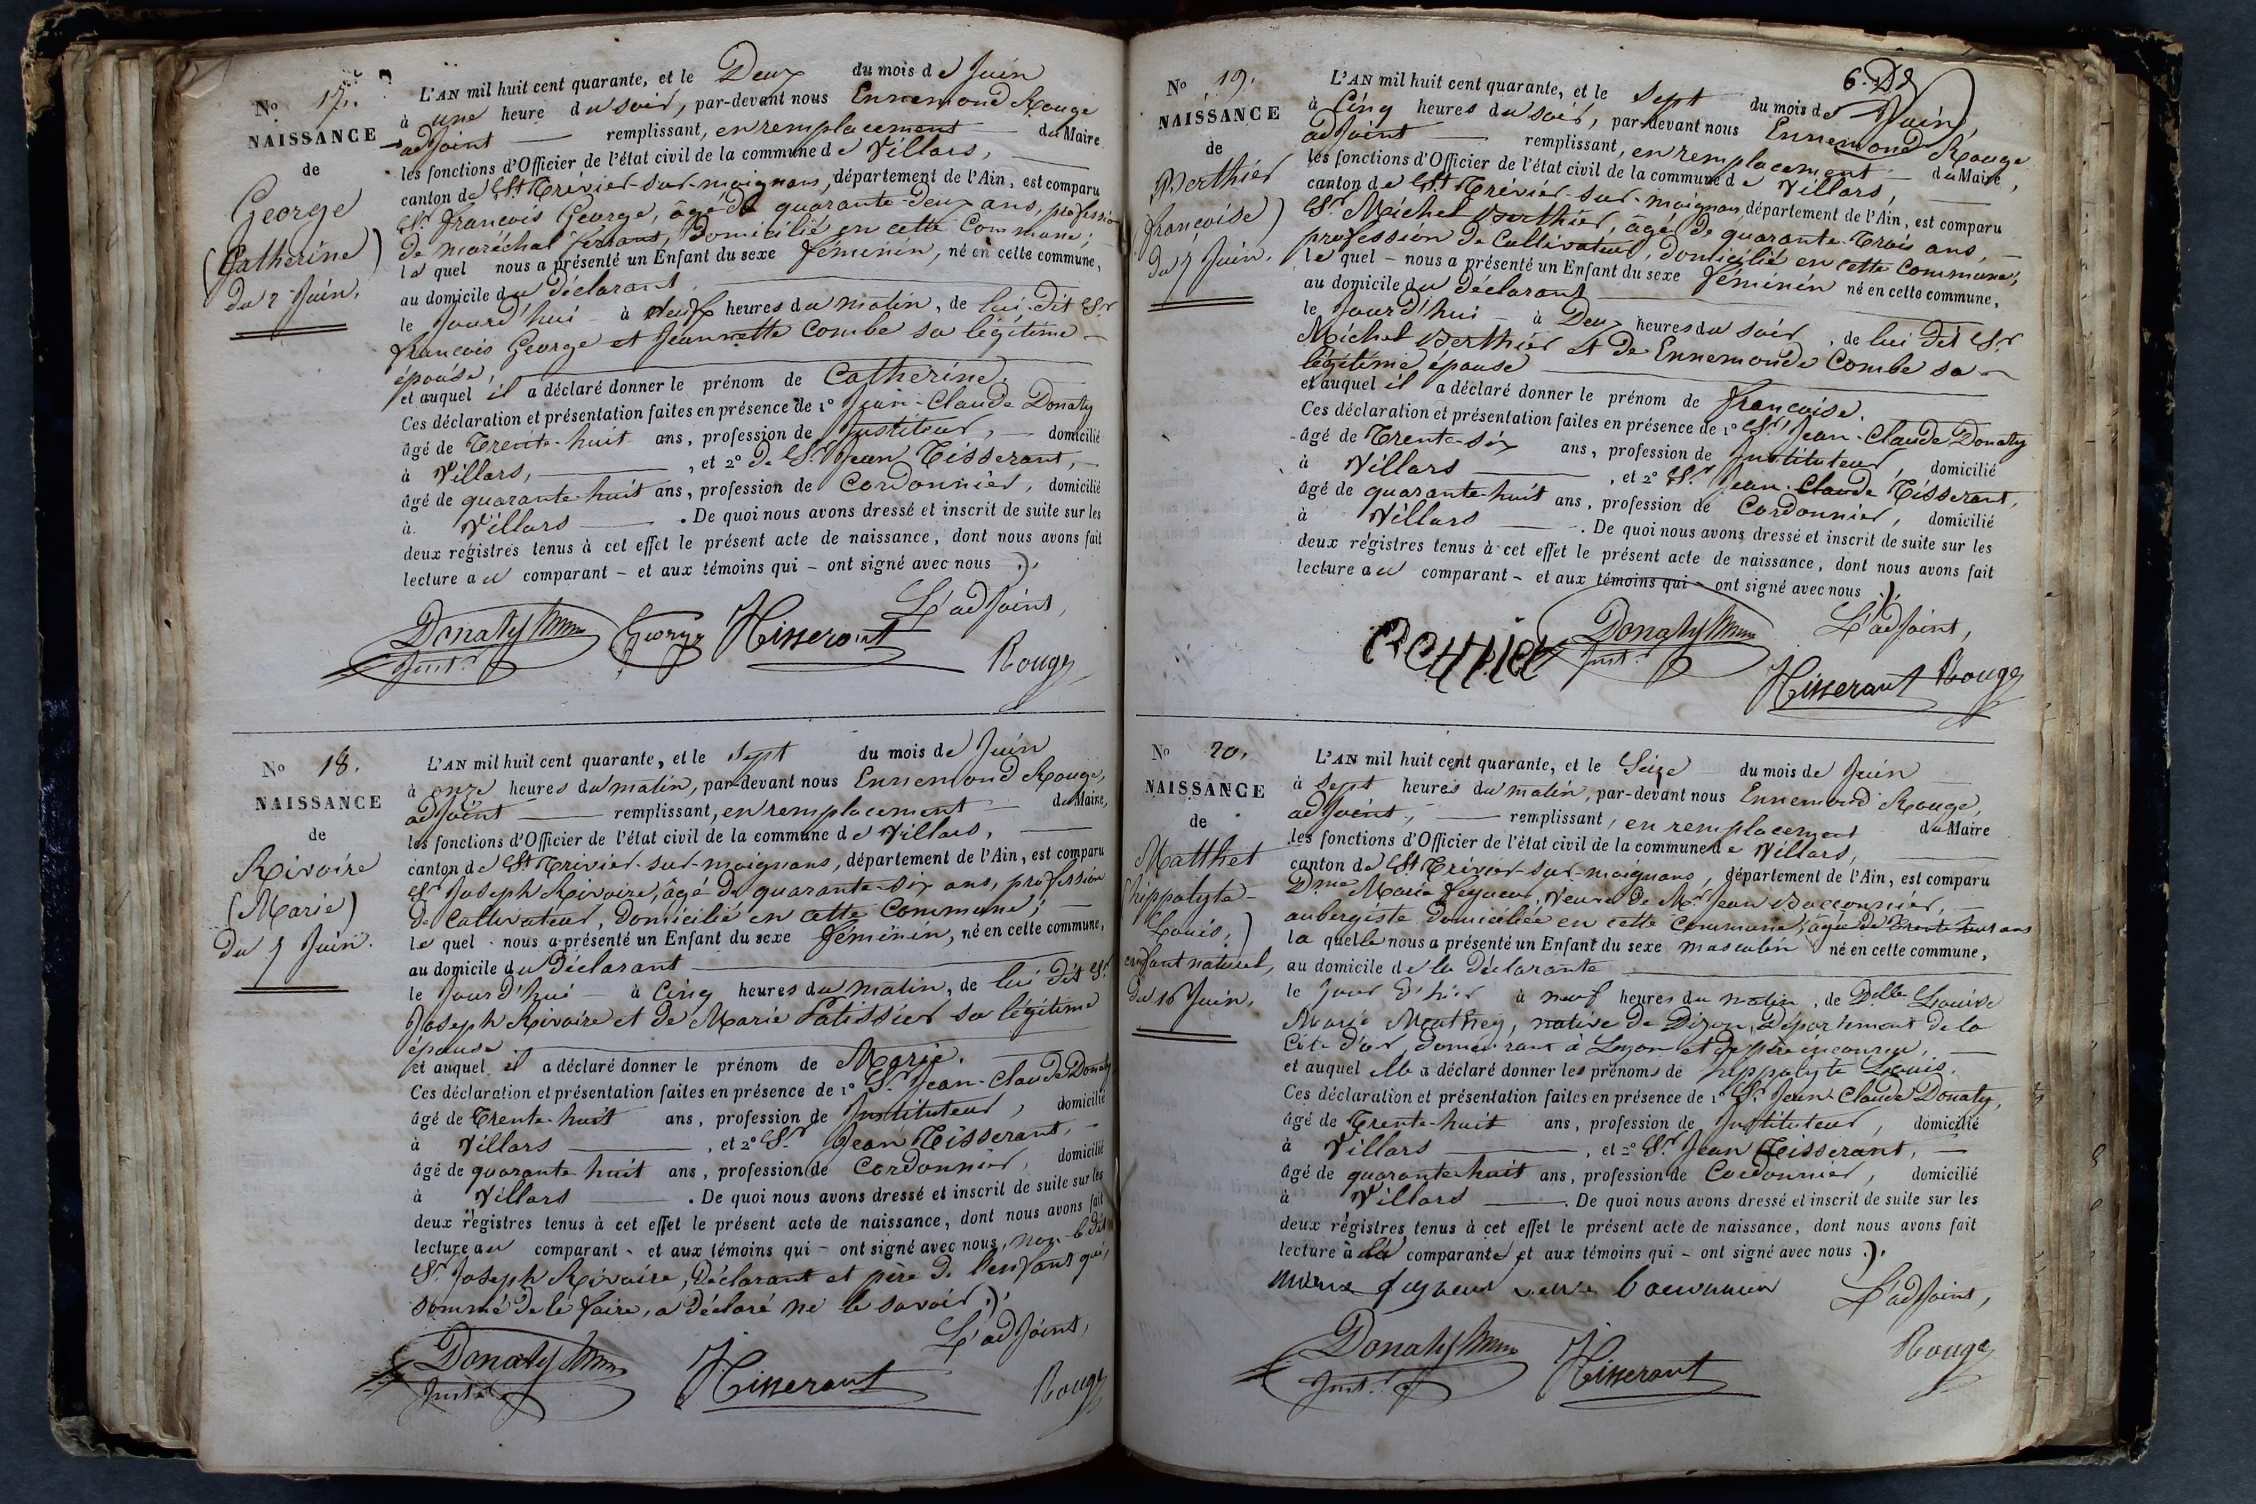 No 17.
NAISSANCE
de
George
(Catherine)
du 2 Juin.
L'AN mil huit cent quarante, et le Deux du mois de Juin
à une heure du soir, par-devant nous Ennemond Rouge
adjoint remplissant, en remplacement du Maire
les fonctions d'Officier de l'état civil de la commune de Villars,
canton de St Trévier-sur-moignans, département de l'Ain, est comparu
Sr. françois George, âgé de quarante-deux ans, profession
de maréchal ferrant, domicilié en cette Commune;
le quel nous a présenté un Enfant du sexe féminin, né en cette commune,
au domicile du déclarant
le jourd'hui à neuf heures du matin, de lui dit Sr
françois George et Jeannette Combe sa légitime
épouse,
et auquel il a déclaré donner le prénom de Catherine.
Ces déclaration et présentation faites en présence de 1° Jean-Claude Donaty
âgé de Trente-huit ans, profession de Instituteur, domicilié
à Villars, , et 2° de Sr. Jean Tisserant,
âgé de quarante-huit ans, profession de Cordonnier, domicilié
à Villars . De quoi nous avons dressé et inscrit de suite sur les
deux régistres tenus à cet effet le présent acte de naissance, dont nous avons fait
lecture au comparant - et aux témoins qui - ont signé avec nous
L'adjoint,
Donaty George Tisserant
Inst.r Rouge
No 18.
NAISSANCE
de
Rivoire
(Marie)
du 7 Juin.
L'AN mil huit cent quarante, et le sept du mois de Juin
à onze heures du matin, par-devant nous Ennemond Rouge,
adjoint remplissant, en remplacement du Maire,
les fonctions d'Officier de l'état civil de la commune de Villars,
canton de St Trivier-sur-moignans, département de l'Ain, est comparu
Sr Joseph Rivoire, âgé de quarante-six ans, profession
de Cultivateur, domicilié en cette Commune;
le quel nous a présenté un Enfant du sexe féminin, né en cette commune,
au domicile du Déclarant
le jourd'hui à Cinq heures du matin, de lui dit Sr
Joseph Rivoire et de Marie Patissier sa légitime
épouse
et auquel il a déclaré donner le prénom de Marie.
Ces déclaration et présentation faites en présence de 1° Sr. Jean-Claude Donaty
âgé de Trente-huit ans, profession de Instituteur, domicilié
à Villars , et 2° Sr Jean Tisserant,
âgé de quarante-huit ans, profession de Cordonnier, domicilié
à Villars . De quoi nous avons dressé et inscrit de suite sur les
deux régistres tenus à cet effet le présent acte de naissance, dont nous avons fait
lecture au comparant - et aux témoins qui - ont signé avec nous, non le dit
Sr. Joseph Rivoire, Déclarant et père de l'enfant qui,
sommé de le faire, a déclaré ne le savoir
L'adjoint,
Donaty Tisserant
Inst.r Rouge
6.
No 19.
NAISSANCE
de
Berthier
(françoise)
du 7 Juin.
L'AN mil huit cent quarante, et le sept du mois de Juin,
à Cinq heures du soir, par-devant nous Ennemond Rouge
adjoint remplissant, en remplacement du Maire,
les fonctions d'Officier de l'état civil de la commune de Villars,
canton de St. Trévier-sur-moignans, département de l'Ain, est comparu
Sr. Michel Berthier, âgé de quarante-Trois ans,
profession de Cultivateur, domicilié en cette Commune;
le quel - nous a présenté un Enfant du sexe féminin né en cette commune,
au domicile du déclarant
le jourd'hui à Deux heures du soir, de lui dit Sr
Michel Berthier et de Ennemonde Combe sa
légitime épouse
et auquel il a déclaré donner le prénom de françoise.
Ces déclaration et présentation faites en présence de 1° Sr. Jean-Claude Donaty
âgé de Trente-six ans, profession de Instituteur, domicilié
à Villars , et 2° Sr. Jean-Claude Tisserant,
âgé de quarante-huit ans, profession de Cordonnier, domicilié
à Villars . De quoi nous avons dressé et inscrit de suite sur les
deux régistres tenus à cet effet le présent acte de naissance, dont nous avons fait
lecture au comparant - et aux témoins qui - ont signé avec nous
L'adjoint,
Donaty
Inst.r
Tisserant Rouge
No 20.
NAISSANCE
de
Matthet
(hippolyte-
Louis,)
enfant naturel,
du 16 Juin.
L'AN mil huit cent quarante, et le Seize du mois de Juin
à sept heures du matin, par-devant nous Ennemond Rouge,
adjoint, remplissant, en remplacement du Maire
les fonctions d'Officier de l'état civil de la commune de Villars,
canton de St Trévier-sur-moignans, département de l'Ain, est comparu
Dme Marie feyeux, Veuve de Mr Jean Bacconnier,
aubergiste domiciliée en cette Commune, âgée de Trente huit ans
la quelle nous a présenté un Enfant du sexe masculin né en cette commune,
au domicile de la déclarante
le jour d'hier à neuf heures du matin, de Dlle Louise
Marie Matthey, native de Dijon, Département de la
Côte d'or, demeurant à Lyon et de père inconnu,
et auquel elle a déclaré donner les prénoms de hippolyte Louis.
Ces déclaration et présentation faites en présence de 1° Sr. Jean-Claude Donaty,
âgé de Trente-huit ans, profession de Instituteur, domicilié
à Villars , et 2° Sr. Jean Tisserant,
âgé de quarante-huit ans, profession de Cordonnier, domicilié
à Villars . De quoi nous avons dressé et inscrit de suite sur les
deux régistres tenus à cet effet le présent acte de naissance, dont nous avons fait
lecture à la comparante et aux témoins qui - ont signé avec nous
veuve L'adjoint,
Donaty Tisserant Rouge
Inst.r